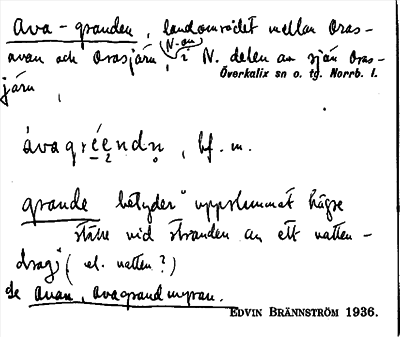 Ava-granden, landområdet mellan Oras-
avan och Orasjärv, (N. om) i N. delen av sjön Oras-
Överkalix sn o. tg. Norrb. l.
järv,
ávagréendn, bf. m.
grande betyder "uppslammat högre
ställe vid stranden av ett vatten-
drag" (el. vatten?)
Se avan, avagrandmyran.
EDVIN BRÄNNSTRÖM 1936.